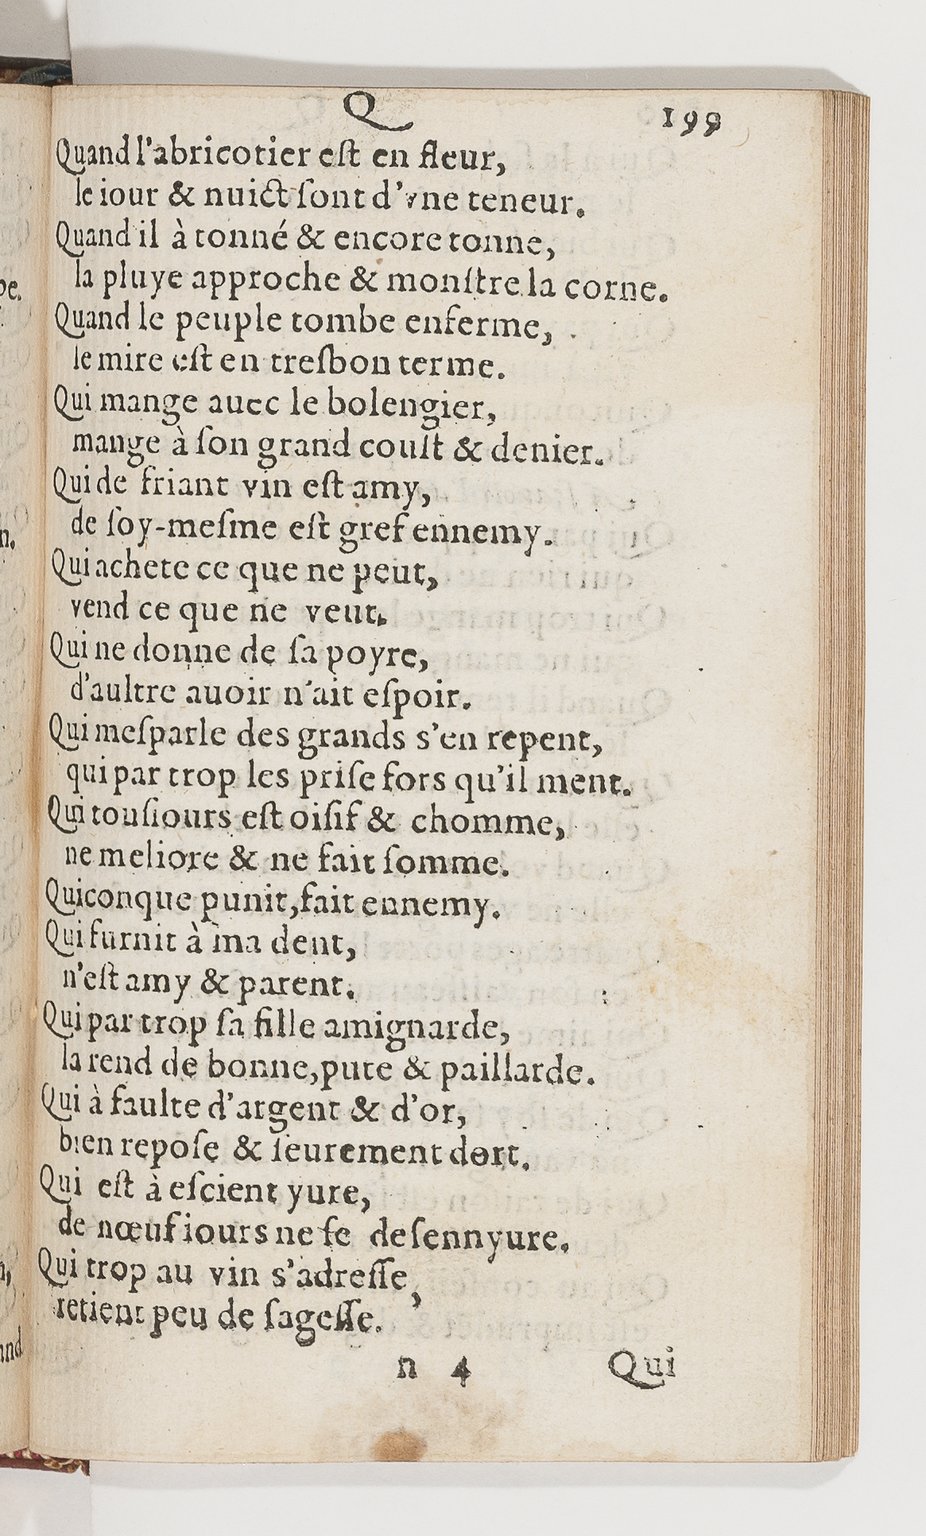 Q 199
Quand l'abricotier eſt en fleur,
le iour & nuict ſont d'vne teneur.
Quand il à tonné & encore tonne,
la pluye approche & monſtre la corne.
Quand le peuple tombe enferme,
le mire eſt en treſbon terme.
Qui mange auec le bolengier,
mange à ſon grand couſt & denier.
Qui de friant vin eſt amy,
de ſoy-meſme eſt gref ennemy.
Qui achete ce que ne peut,
vend ce que ne veut.
Qui ne donne de ſa poyre,
d'aultre auoir n'ait eſpoir.
Qui meſparle des grands s'en repent,
qui par trop les priſe fors qu'il ment.
Qui touſiours eſt oiſif & chomme,
ne meliore & ne fait ſomme.
Quiconque punit, fait ennemy.
Qui furnit à ma dent,
n'eſt amy & parent.
Qui par trop ſa fille amignarde,
la rend de bonne, pute & paillarde.
Qui à faulte d'argent & d'or,
bien repoſe & ſeurement dort.
Qui eſt à eſcient yure,
de nœuf iours ne ſe deſennyure.
Qui trop au vin s'adreſſe,
retient peu de ſageſſe.
n 4 Qui